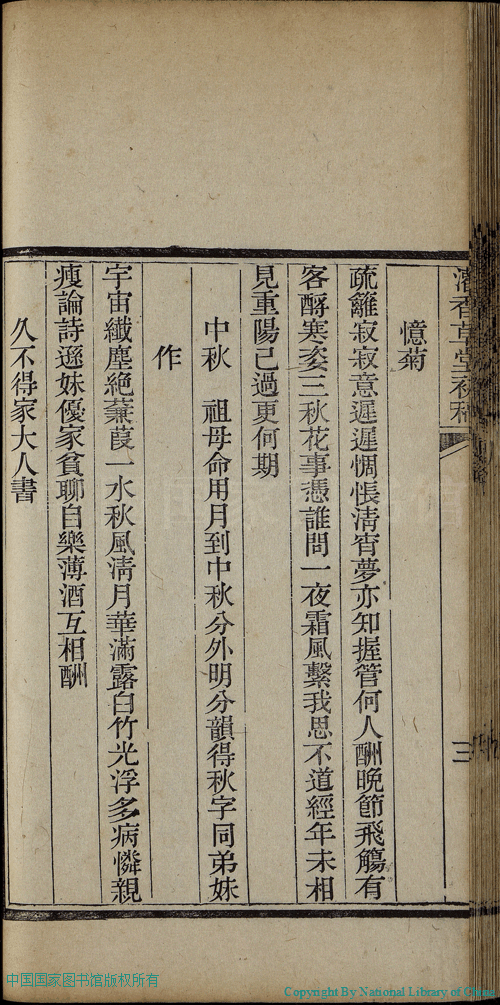 憶菊
疏籬寂寂意遲遲惆悵清宵夢亦知握管何人酬晚節飛觴有
客酹寒姿三秋花事憑誰問一夜霜風繫我思不道經年未相
見重陽已過更何期
中秋　祖母命用月到中秋分外明分韻得秋字同弟妹
作
宇宙纖塵絕蒹葭一水秋風淸月華滿露白竹光浮多病憐親
瘦論詩遜妹優家貧聊自樂薄酒互相酬
久不得家大人書
香草堂
三
中国国家图书馆版权所有
Copyright By National Library of China